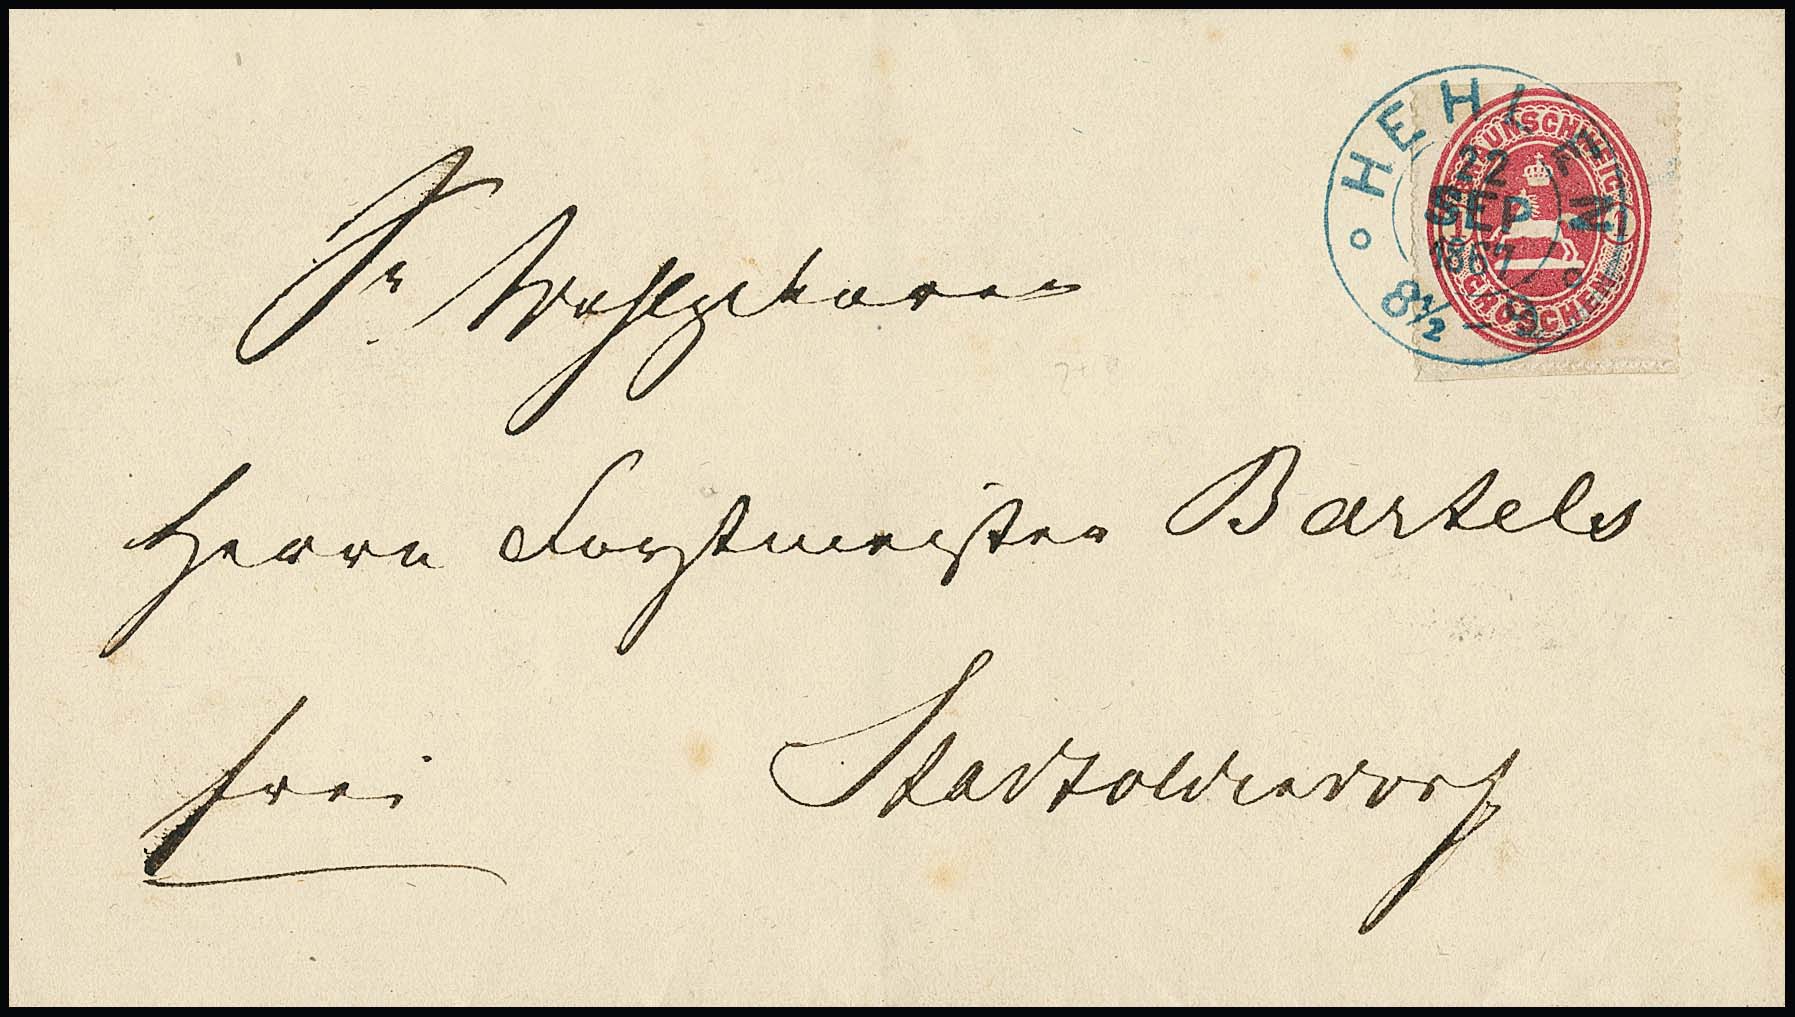 HEHLEN
22
SEP
1867
8½ - 9
BRAUNSCHWEIG
1 GROSCHEN 1
Sr Wohlgeboren
Herrn Forstmeister Bartels
frei Stadtoldendorf